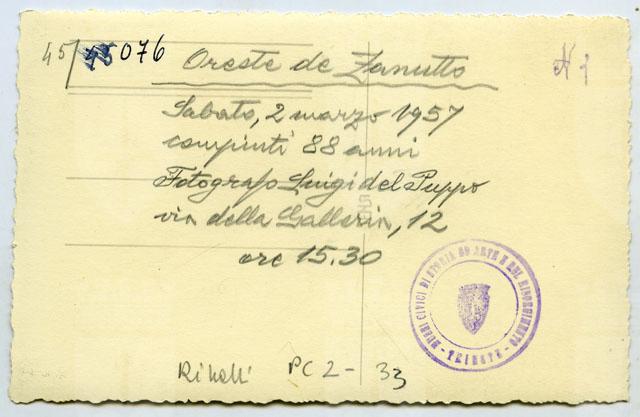 45/ 076
N 1
Oreste de Zanutto
Sabato, 2 marzo 1957
compiuti 88 anni
Fotografo Luigi del Puppo
via della Galleria, 12
ore 15.30
MUSEI CIVICI DI STORIA ED ARTE E DEL RISORGIMENTO
- TRIESTE -
PC 2 - 33